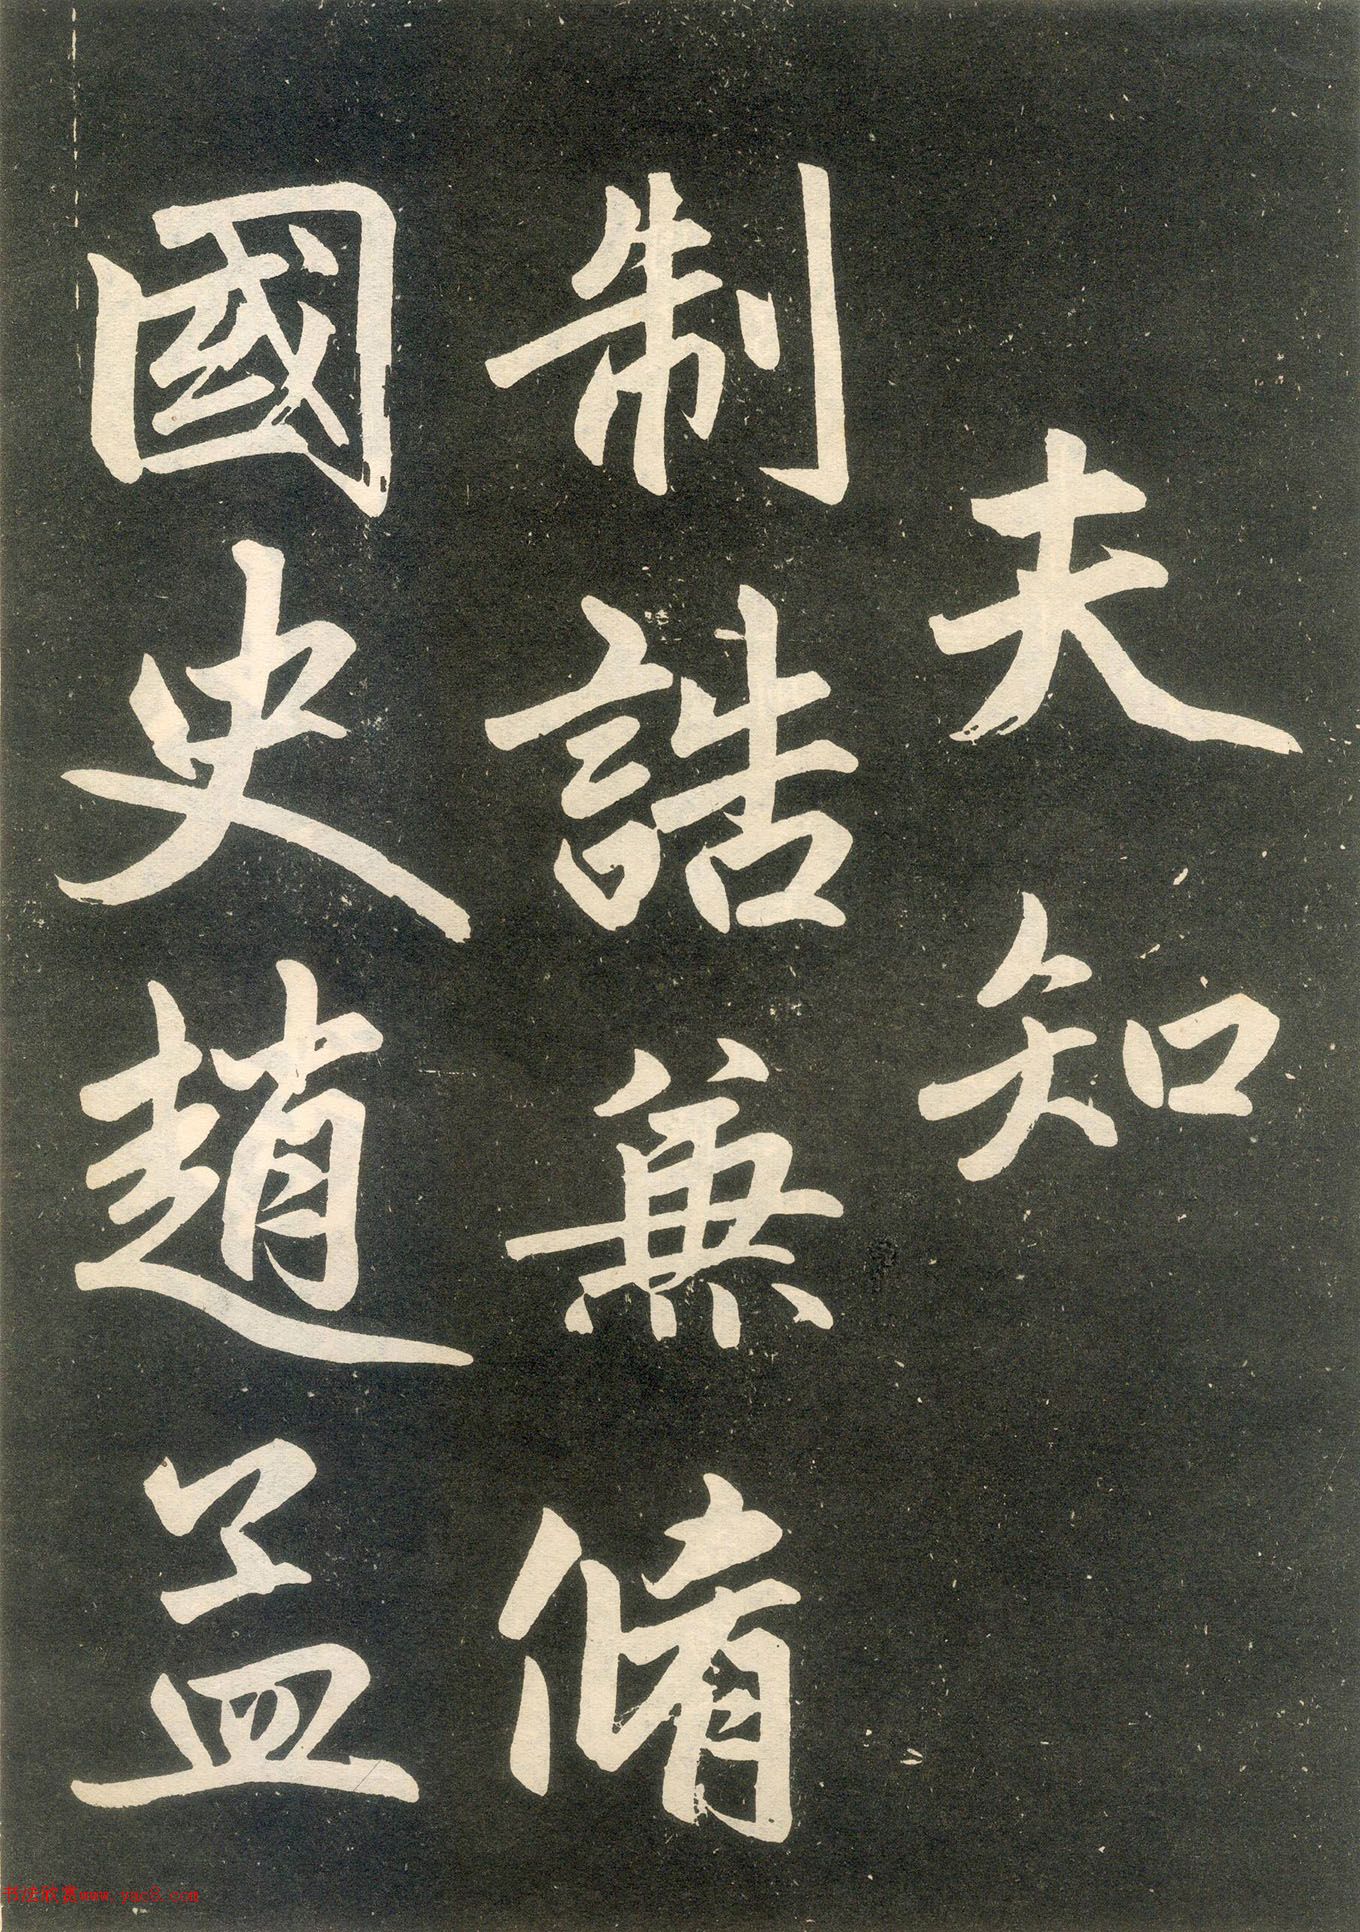 夫知
制誥兼脩
國史趙孟
书法欣赏www.yac8.com